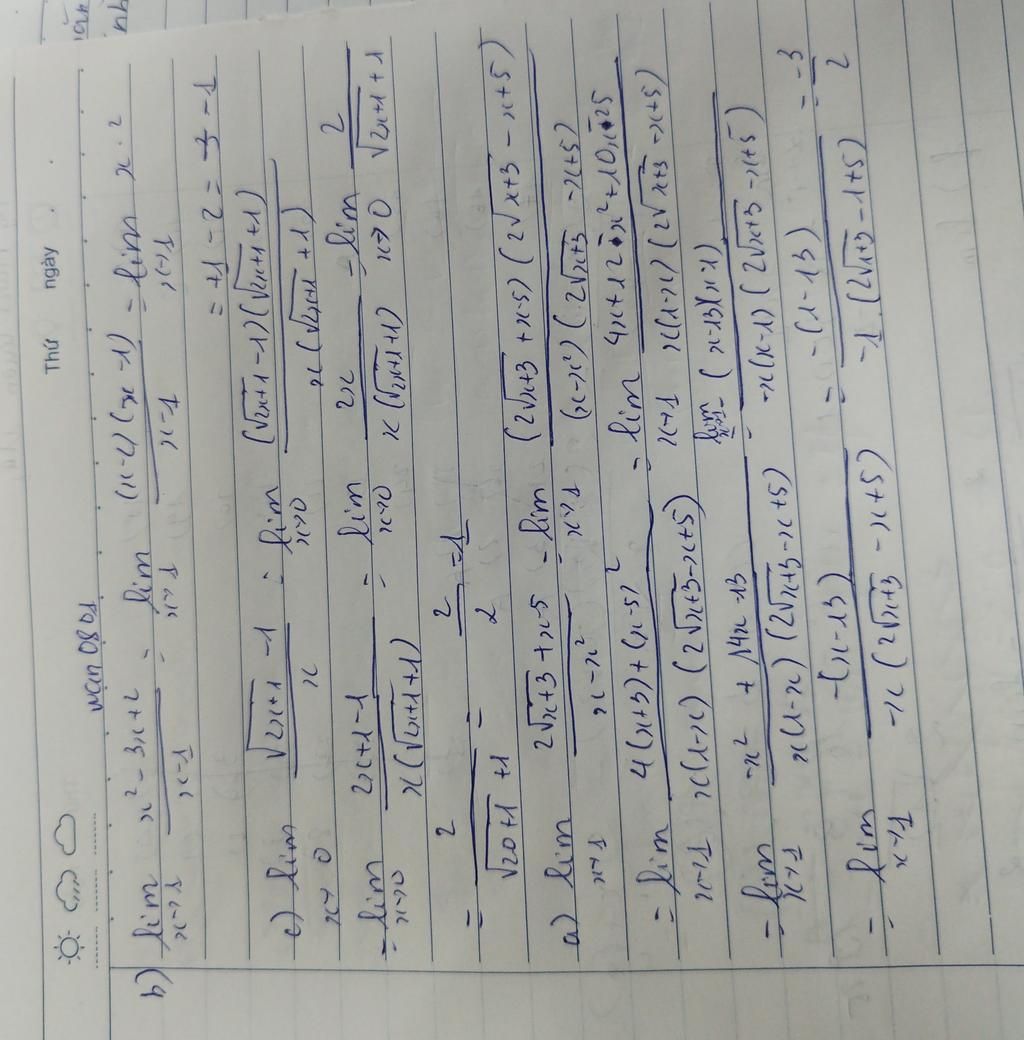 Thứ ngày
wan 0801
b) lim x→1 (x² - 3x + 2)/(x-1) = lim x→1 (x-2)(x-1)/(x-1) = lim x→1 x - 2
= +1 - 2 = -1
c) lim x→0 (√(2x+1) - 1)/x = lim x→0 (√(2x+1) - 1)(√(2x+1) + 1)/(x(√(2x+1) + 1))
= lim x→0 (2x+1-1)/(x(√(2x+1)+1)) = lim x→0 2x/(x(√(2x+1)+1)) = lim x→0 2/(√(2x+1)+1)
= 2/(√(20+1)+1) = 2/2 = 1
a) lim x→1 (2√(x+3) + x-5)/(x-x²) = lim x→1 (2√(x+3) + x-5)(2√(x+3) - x+5)/((x-x²)(2√(x+3) - x+5))
= lim x→1 (4(x+3)+(x-5)²)/(x(1-x)(2√(x+3)-x+5)) = lim x→1 (4x+12-x²+10x-25)/(x(1-x)(2√(x+3)-x+5))
= lim x→1 (-x² + 14x - 13)/(x(1-x)(2√(x+3)-x+5)) = lim x→1 -(x-13)(x-1)/(-x(x-1)(2√(x+3)-x+5))
= lim x→1 -(x-13)/(-x(2√(x+3)-x+5)) = -(1-13)/(-1(2√(1+3)-1+5)) = -3/2